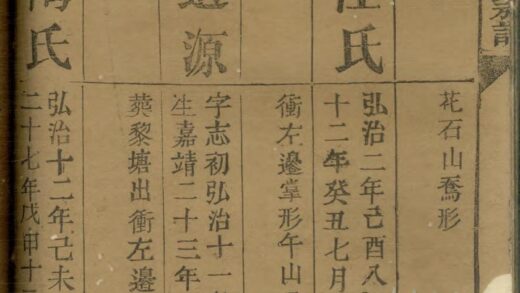 花石山喬形
氏
弘治二年己酉八
十二年癸丑七月
衝左邊掌形午山
源
字志初弘治十一
生嘉靖二十三年
葬黎塘出衝左邊
氏
弘治十二年己未
二十七年戊申十